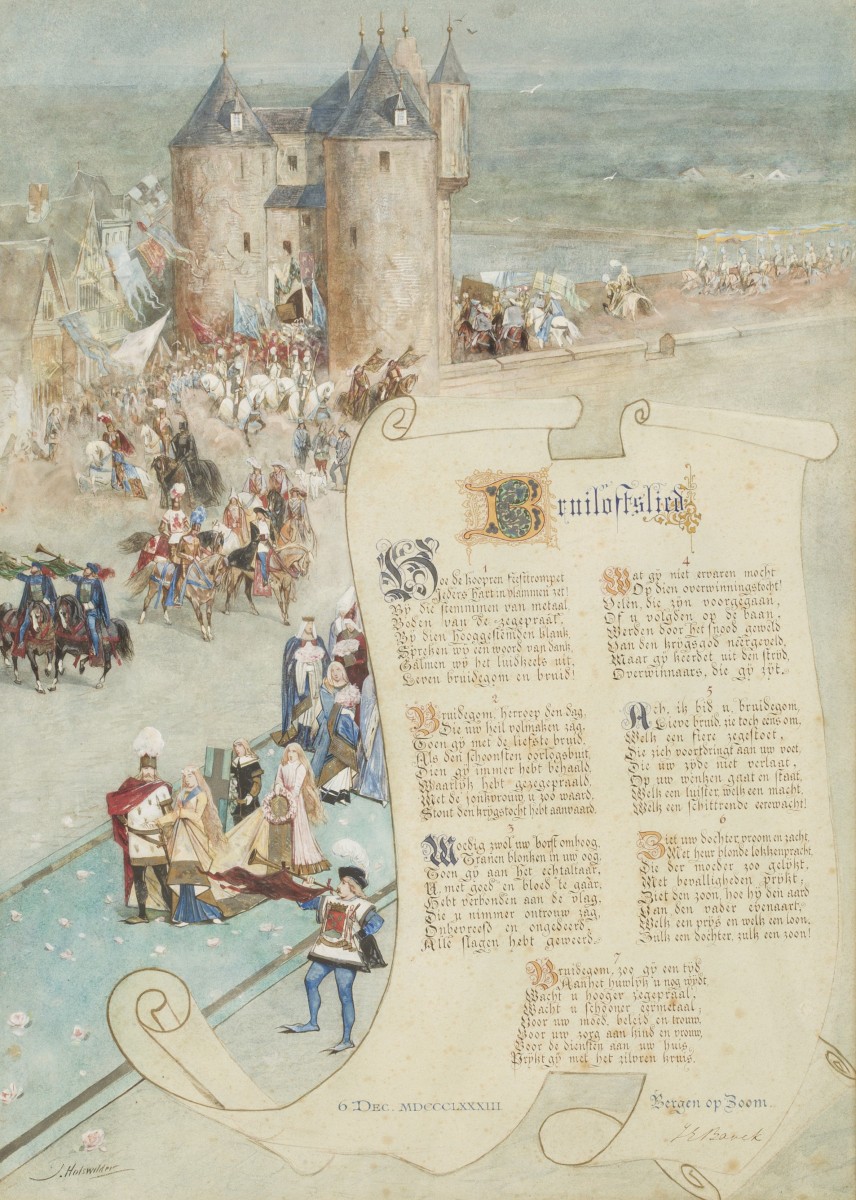 Bruilöftslied
1
Hoe de koopren feesttrompet
Ieders hart in vlammen zet!
Bÿ die stemmen van metaal,
Boden van de zegepraal,
Bÿ dien hooggestemden klank,
Spreken wÿ een woord van dank,
Galmen wÿ het luidkeels uit,
Leven bruidegom en bruid!
2
Bruidegom, herroep den dag,
Die uw heil volmaken zag,
Toen gÿ met de liefste bruid,
Als den schoonsten oorlogsbuit,
Dien gÿ immer hebt behaald,
Waarlÿk hebt gezegepraald,
Met de jonkvrouw, u zoo waard,
Stout den krÿgstocht hebt aanvaard.
3
Moedig zwol uw borst omhoog,
Tranen blonken in uw oog,
Toen gÿ aan het echtaltaar,
U met goed en bloed te gaar,
Hebt verbonden aan de vlag,
Die u nimmer ontrouw zag,
Onbevreesd en ongedeerd,
Alle slagen hebt geweerd.
4
Wat gÿ niet ervaren mocht
Op dien overwinningstocht!
Velen, die zÿn voorgegaan,
Of u volgden op de baan,
Werden door het snood geweld
Van den krÿgsgod neergeveld,
Maar gÿ keerdet uit den strÿd,
Overwinnaars, die gÿ zÿt.
5
Ach, ik bid u, bruidegom,
Lieve bruid, zie toch eens om,
Welk een fiere zegestoet,
Die zich voortdringt aan uw voet,
Die uw zÿde niet verlaat,
Op uw wenken gaat en staat,
Welk een luister, welk een macht,
Welk een schittrende eerewacht!
6
Ziet uw dochter, vroom en zacht,
Met heur blonde lokkenpracht,
Die der moeder zoo gelÿkt,
Met bevalligheden prÿkt;
Ziet den zoon, hoe hÿ den aard
Van den vader evenaart,
Welk een prÿs en welk een loon,
Zulk een dochter, zulk een zoon!
7
Bruidegom, zoo gÿ een tÿd
Aan het huwlÿk u nog wÿdt,
Wacht u hooger zegepraal,
Wacht u schooner eermetaal;
Voor uw moed, beleid en trouw,
Voor uw zorg aan kind en vrouw,
Voor de diensten aan uw huis,
Prÿkt gÿ met het zilvren kruis.
6 Dec. MDCCCLXXXIII
Bergen op Zoom
J E Banck
J. Hulswilder